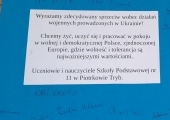 Wyrażamy zdecydowany sprzeciw wobec działań
wojennych prowadzonych w Ukrainie!
Chcemy żyć, uczyć się i pracować w pokoju
w wolnej i demokratycznej Polsce, zjednoczonej
Europie, gdzie wolność i tolerancja są
najważniejszymi wartościami.
Uczniowie i nauczyciele Szkoły Podstawowej nr
11 w Piotrkowie Tryb.